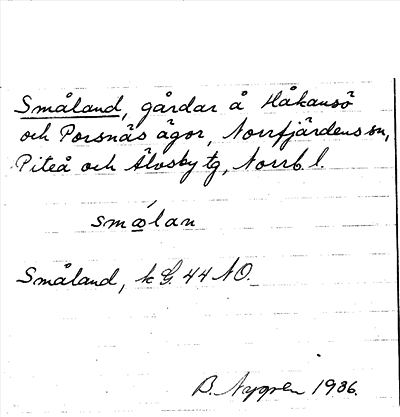 Småland, gårdar å Håkansö
och Porsnäs ägor, Norrfjärdens sn,
Piteå och Älvsby tg, Norrb. l.
smálan
Småland, k G. 44 NO.
B. Nygren 1986.